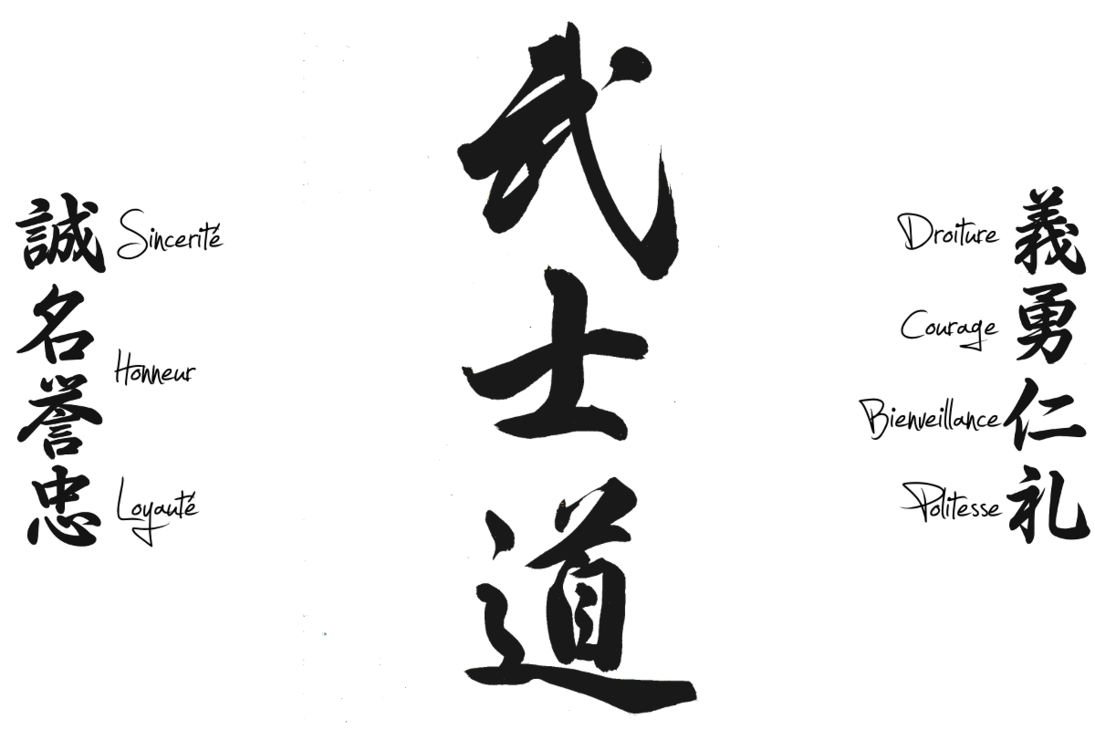 武士道
誠 Sincerité
名誉 Honneur
忠 Loyauté
義 Droiture
勇 Courage
仁 Bienveillance
礼 Politesse